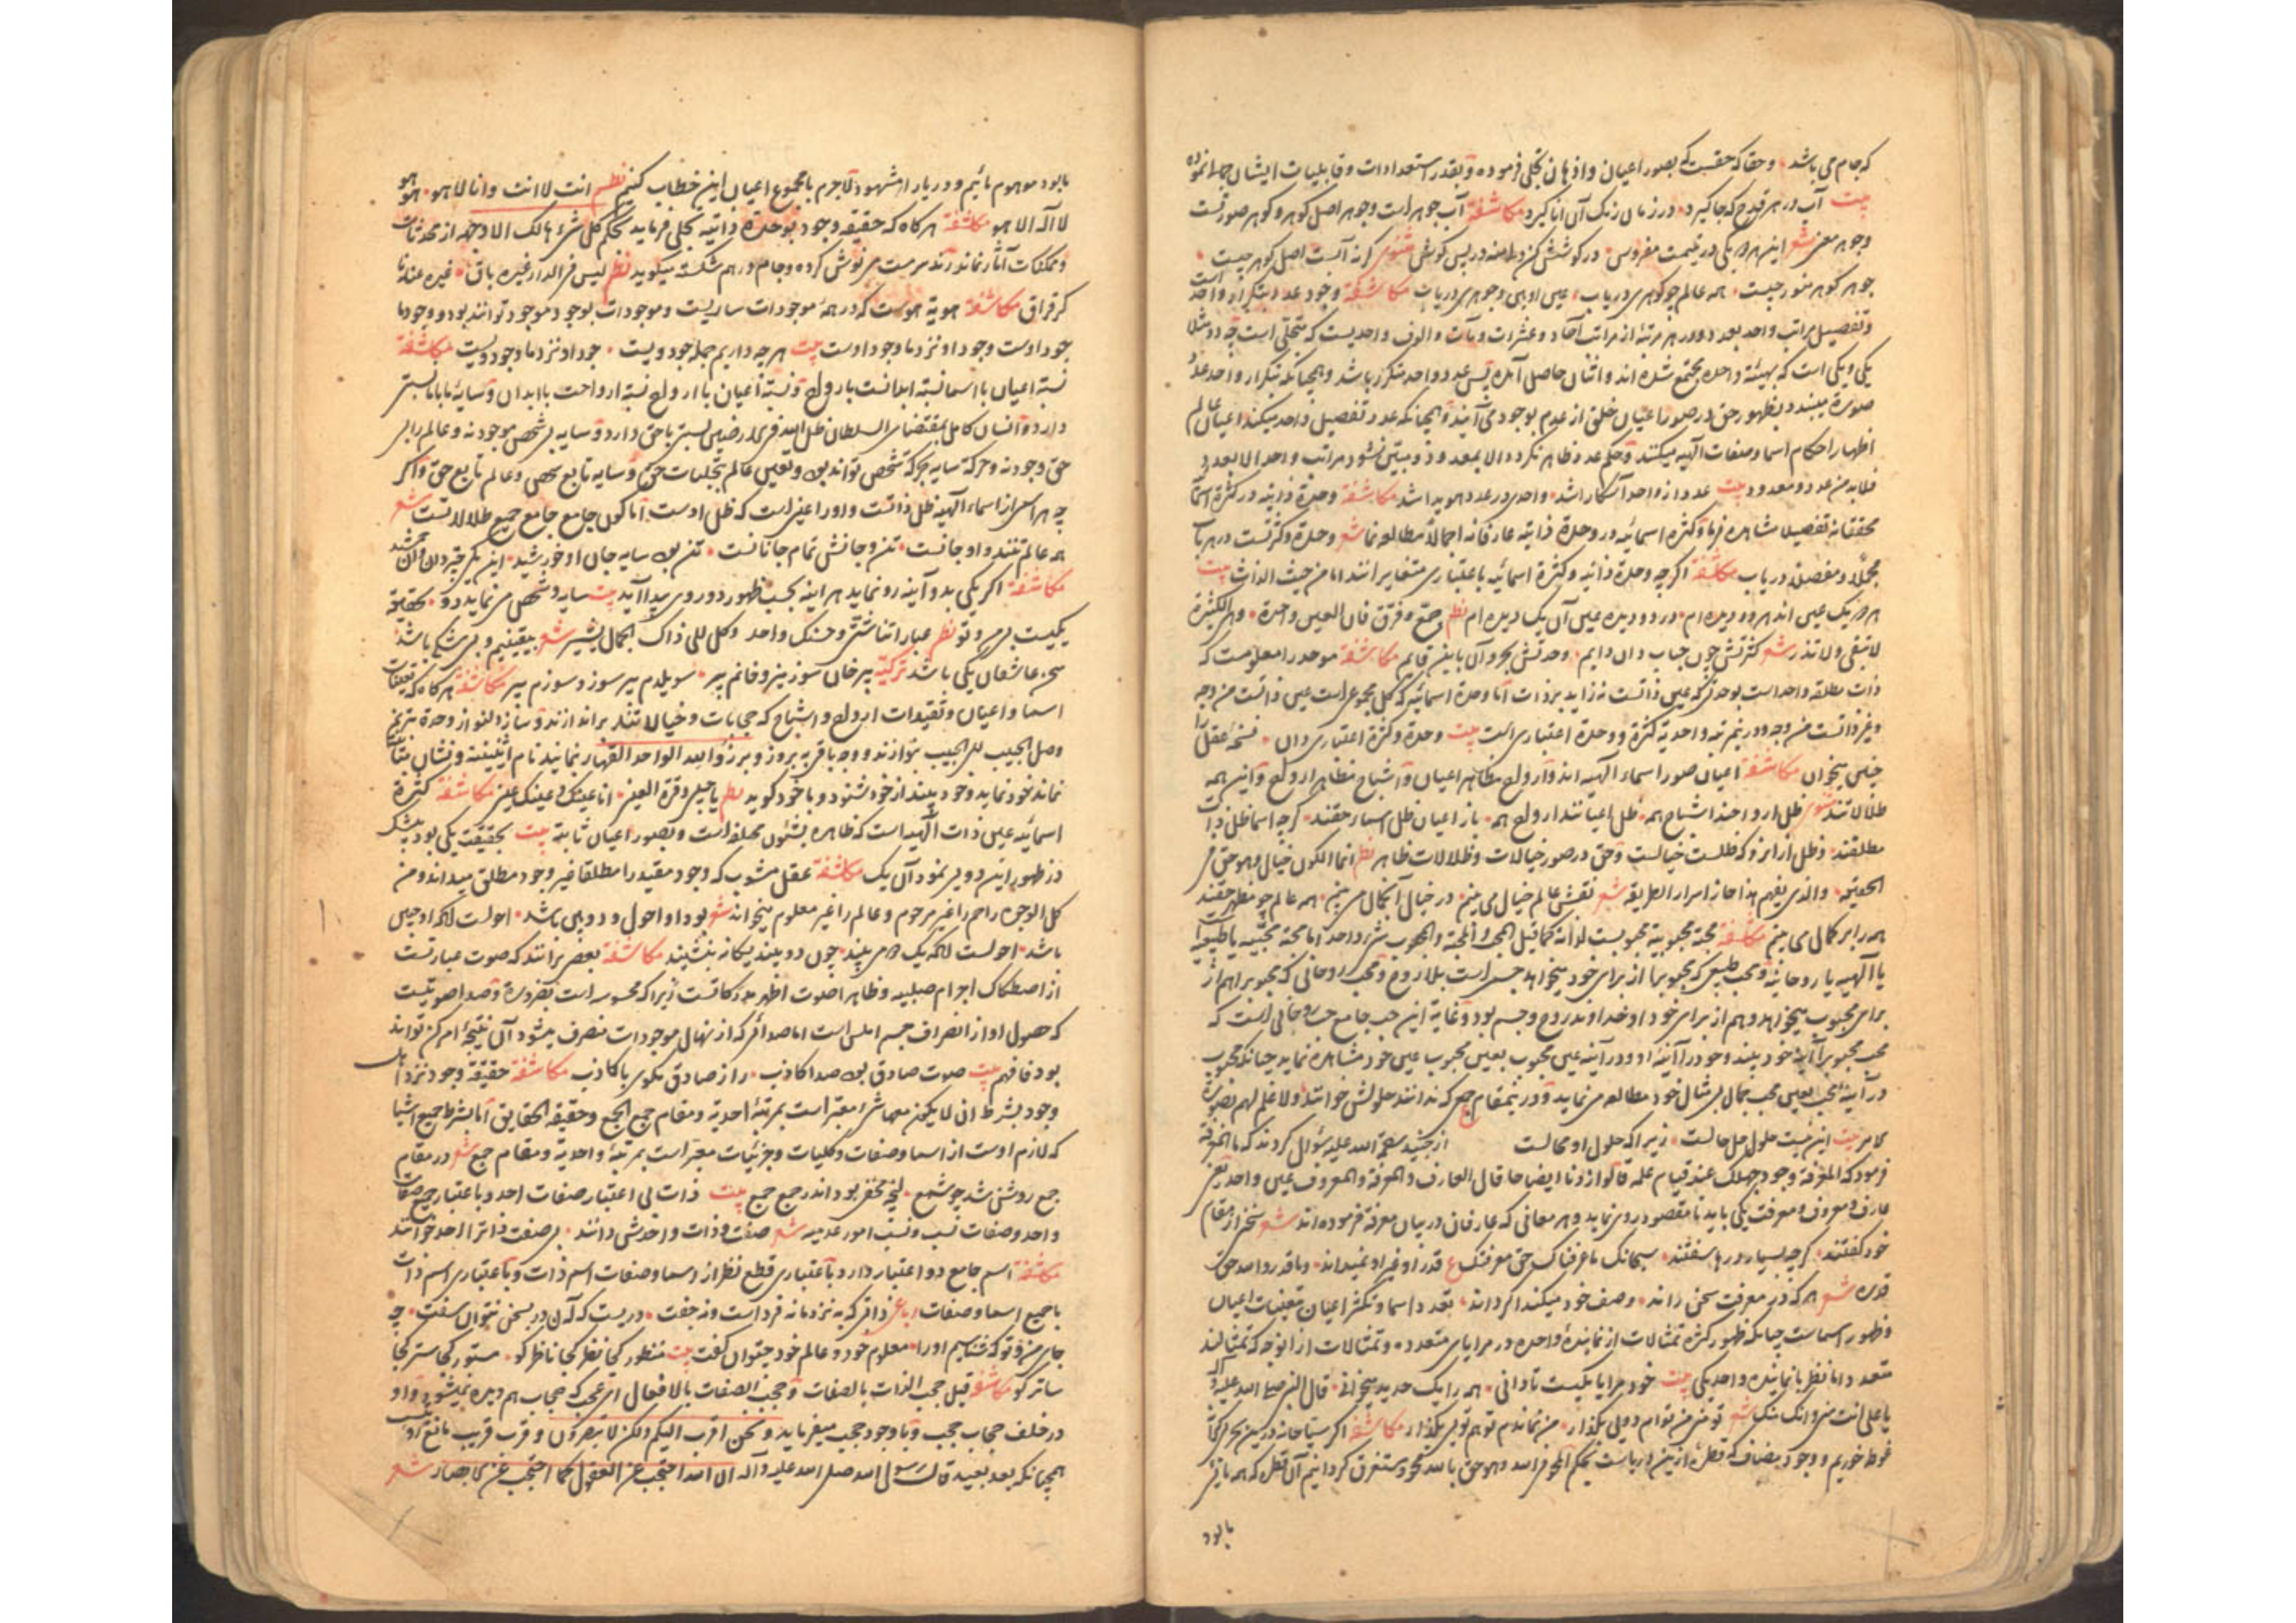 که جام می باشد وحقا که حقیقت که بصور اعیان واذهان تجلی فرموده وبقدر استعدادات وقابلیات ایشان جمال نموده
بیت آب در هر قدح که جا گیرد در زمان رنگ آن انا گیرد مکاشفة آب جوهر است وجوهر اصل گوهر وگوهر صورتست
وجوهر معنی شعر این هر دو یکی در قیمت مفروش در کوشش کن ودامنه در پس گوش مثنوی گرنه آبست اصل گوهر چیست
جوهر گوهر منور چیست همه عالم چو گوهری دریاب عین او بین وجوهری دریاب مکاشفة وجود عدد بتکرار واحد است
وتفصیل مراتب واحد بعدد ودر هر مرتبه از مراتب آحاد وعشرات ومآت والوف واحدیست که متجلی است چه دو مثلا
یکی ویکی است که بهیئة واحده مجتمع شده اند واثنان حاصل آمده پس عدد واحد متکرر باشد وهمچنانکه تکرار واحد عدد
صورة میبندد بظهور حق در صور اعیان خلق از عدم بوجود می آیند وهمچنانکه عدد تفصیل واحد میکند اعیان عالم
اظهار احکام اسما وصفات الهیه میکنند وحکم عدد ظاهر نگردد الا بمعدود ومتبین نشود مراتب واحد الا بعدد
فلابد من عدد ومعدود بیت عدد از واحد آشکار اشد واحدی در عدد هویدا شد مکاشفة وحدة ذاتیه در کثرة اسما
محققانه تفصیلا مشاهده فرما وکثرة اسمائیه در وحدة ذاتیه عارفانه اجمالا مطالعه نما شعر وحدة وکثرتست در هر باب
مجملا ومفصلا دریاب مکاشفة اگرچه وحدة ذاتیه وکثرة اسمائیه باعتباری متغایرانند اما من حیث الذات بیت
هر دو یک عین اند هر دو دیده ام در دو دیده عین آن یک دیده ام نظم جمع وفرق فان العین واحدة وهی الکثیرة
لا تبقی ولا تذر شعر کثرتش چون حباب دان دایم وحدتش بحر وآن باین قایم مکاشفة موحد را معلومست که
ذات مطلقه واحد است بوحدتی که عین ذاتست نه زاید بر ذات اما وحدة اسمائیه که کل مجموعی است عین ذاتست من وجه
وغیر ذاتست من وجه ودر مرتبه واحدیه کثرة ووحدة اعتباری است بیت وحدة وکثرة اعتباری دان نسخه عقل را
چنین میخوان مکاشفة اعیان صور اسماء الهیه اند وارواح مظاهر اعیان واشباح مظاهر ارواح واین همه
ظلالاتند مثنوی ظل ارواحند اشباح همه ظل اعیانند ارواح همه باز اعیان ظل اسمای حقند گرچه اسما ظل ذات
مطلقند وظل از آنرو که ظلست خیالست وحق در صور خیالات وظلالات ظاهر نظم انما الکون خیال وهو حق فی
الحقیقه والذی یفهم هذا حاز اسرار الطریقه شعر نقش عالم خیال می بینم در خیال آن جمال می بینم همه عالم چو مظهر حقند
همه را بر کمال می بینم مکاشفة محبة محبوبیة محبوبست لذاته کما قیل المحب والمحبة والمحبوب شیء واحد اما محبة محبیه یا طبیعیة
یا الهیه یا روحانیه ومحب طبیعی که محبوب را از برای خود میخواهد جسم است بلا روح ومحب روحانی که محبوب را هم از
برای محبوب میخواهد وهم از برای خود او خداوند روح وجسم بود وغایة این حب جامع حب روحانی است که
محب محبوب را آینه خود بیند وخود را آینه او ودر آینه عین محبوب بعین محبوب عین خود مشاهده نماید چنانکه محبوب
در آینه محب بعین محب جمال بی مثال خود مطالعه می نماید ودرین مقام جمعی که ندانند حلولش خوانند ولا علم لهم بصورة
الامر بیت این نیست حلول حل حالست زیرا که حلول او محالست از جنید رحمة الله علیه سؤال کردند که ما المعرفة
فرمود که المعرفة وجود جهلک عند قیام علمه قالوا زدنا ایضاحا قال العارف والمعرفة والمعروف عین واحد یعنی
عارف ومعروف ومعرفت یکی باید تا مقصود روی نماید وهر معانی که عارفان در بیان معرفة فرموده اند شعر سخن از مقام
خود گفتند گرچه بسیار درها سفتند سبحانک ما عرفناک حق معرفتک ع قدر او غیر او نمیداند وما قدروا الله حق
قدره شعر هر که در معرفت سخن راند وصف خود میکند اگر داند تعدد اسما وتکثر اعیان تعینات اعیان
وظهور اسماست چنانکه ظهور کثرة تمثالات از نماینده واحده در مرایای متعدده وتمثالات از آنوجه که تمثالند
متعدد اما نظر با نماینده واحد یکی بیت خود مرایا یکیست تا دانی همه را یک حدید میخوانی قال النبی صلی الله علیه وآله
یا علی انت منی وانا منک شعر تو منی من توام دویی بگذار من نماندم تو هم تویی بگذار مکاشفة اگر سباحانه درین بحر بی کران
غوطه خوریم ووجود مضاف که قطره ازین دریاست بحکم المحو فی الله وهو حق بالله محو ومستغرق گردانیم آن قطره که همه باقی
نابود
نابود موهوم مائیم ودریا را مشهود لاجرم با مجموع اعیان این خطاب کنیم نظم انت لا انت وانا لا هو هو هو
لا اله الا هو مکاشفة هرگاه که حقیقه وجود بوحدة ذاتیه تجلی فرماید بحکم کل شیء هالک الا وجهه از محدثات
وممکنات آثار نماند رند سرمست می نوش کرده وجام درهم شکسته میگوید نظم لیس فی الدار غیره باق غیره عندنا
کرقراق مکاشفة هویة هوست که در همه موجودات ساریست وموجودات بوجود موجود توانند بود ووجود ما
جود اوست وجود او نزد ما وجود اوست بیت هرچه داریم جمله جود ویست جود او نزد ما وجود ویست مکاشفة
نسبة اعیان با اسما نسبة ابدانست بارواح ونسبة اعیان با ارواح نسبة ارواحست با ابدان وسایه ما با ما نسبتی
دارد وانسان کامل بمقتضای السلطان ظل الله فی الارضین نسبتی با حق دارد وسایه بی شخص موجود نه وعالم را بی
حق وجود نه وحرکة سایه بحرکة شخص تواند بود وتعین عالم بتجلیات حق وسایه تابع شخص وعالم تابع حق واگر
چه هر اسمی از اسماء الهیه ظل ذاتست واورا عینی است که ظل اوست اما کون جامع جامع جمیع ظلالاتست شعر
همه عالم تنند واو جانست تن وجانش تمام جانانست تن بود سایه جان او خورشید این یکی جیز دان وآن جمشید
مکاشفة اگر یکی بدو آینه رو نماید هر آینه بحسب ظهور دو روی پیدا آید بیت سایه وشخص می نماید دو بحقیقة
یکیست بی من وتو نظم عباراتنا شتی وحسنک واحد وکل الی ذاک الجمال یشیر شعر بیقینم وبی شکی باشد
سخن عاشقان یکی باشد ترکیه پیر خان سوزینز وفانم پیر سویلدم پیر سوز وسوزم پیر مکاشفة هرگاه که تعلقات
اسما واعیان وتقیدات ارواح واشباح که حجابات وخیالاتند براندازند وساز دلنواز وحدة بترنم
وصل الحبیب الی الحبیب بنوازند ووجه باقی به بروز وبرزوا لله الواحد القهار بنمایند نام اثنینیت ونشان بینات
نماند خود نماید وخود بیند از خود شنود وبا خود گوید نظم یا حبیبی وقرة العین انا عینک وعینک عین مکاشفة کثرة
اسمائیه عین ذات الهیه است که ظاهره بشئون مختلفه است وبصور اعیان ثابته بیت بحقیقت یکی بود بیشک
در ظهور این دویی نمود آن یک مکاشفة عقل مشوب که وجود مقید را مطلقا غیر وجود مطلق میداند ومن
کل الوجوه راحم را غیر مرحوم وعالم را غیر معلوم میخواند شعر بود او احول ودوبین باشد احولست آنکه او چنین
باشد احولست آنکه یک دو می بیند چون دو بیند یگانه ننشیند مکاشفة بعضی برانند که صوت عبارتست
از اصطکاک اجرام صلبیه وظاهرا صوت اظهر مدرکاتست زیرا که محسوسه است بضرورة وصدا صوتیست
که حصول او از انصراف جسم املس است اما صدائی که از نهال موجودات منصرف میشود آن نتیجه امر کن تواند
بود فافهم بیت صوت صادق بود صدا کاذب راز صادق مگوی با کاذب مکاشفة حقیقة وجود نزد اهل
وجود بشرط ان لا یکون معها شیء معبر است بمرتبه احدیه ومقام جمع الجمع وحقیقة الحقایق اما بشرط جمیع اشیا
که لازم اوست از اسما وصفات وکلیات وجزئیات معبر است بمرتبه واحدیه ومقام جمع شعر در مقام
جمع روشن شد چو شمع آنچه مخفی بود اندر جمع جمع بیت ذات بی اعتبار صفات احد وباعتبار جمیع صفات
واحد وصفات نسب ونسب امور عدمیه شعر صفت وذات واحدش دانند بی صفت ذات را احد خوانند
مکاشفة اسم جامع دو اعتبار دارد باعتباری قطع نظر از اسما وصفات اسم ذات وباعتباری اسم ذات
با جمیع اسما وصفات رباعی ذاتی که به نزد ما نه فرد است ونه جفت دریست که آن در بسخن نتوان سفت چه
جای من وتو که شناسیم اورا معلوم خود وعالم خود چتوان گفت بیت منظور کجا نظر کجا ناظر کو مستور کجا ستر کجا
ساتر کو مکاشفة قیل حجب الذات بالصفات وحجب الصفات بالافعال ای عجب که حجاب هم دیده نمیشود واو
در خلف حجاب محجب وبا وجود حجب میفرماید ونحن اقرب الیکم ولکن لا تبصرون وقرب قریب مانع رؤیتست
همچنانکه بعد بعید قال رسول الله صلی الله علیه وآله ان الله احتجب عن العقول کما احتجب عن الابصار شعر